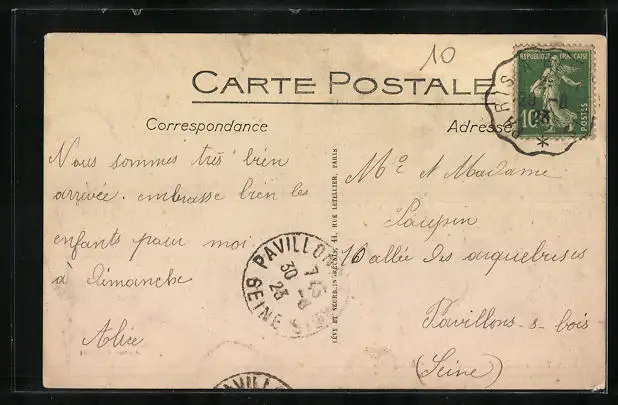 10
CARTE POSTALE
RÉPUBLIQUE FRANÇAISE
10
POSTES
PARIS
30 -8
23
Correspondance
Adresse
Nous sommes très bien
arrivée. embrasse bien les
enfants pour moi
à Dimanche
Alice
PAVILLONS
7
30 -8
23
SEINE
LÉVY ET NEURDEIN RÉUNIS, 44, RUE LETELLIER, PARIS
Mr et Madame
Paupin
10 allée des arquebuses
Pavillons-s-bois
(Seine)
PAVILLO